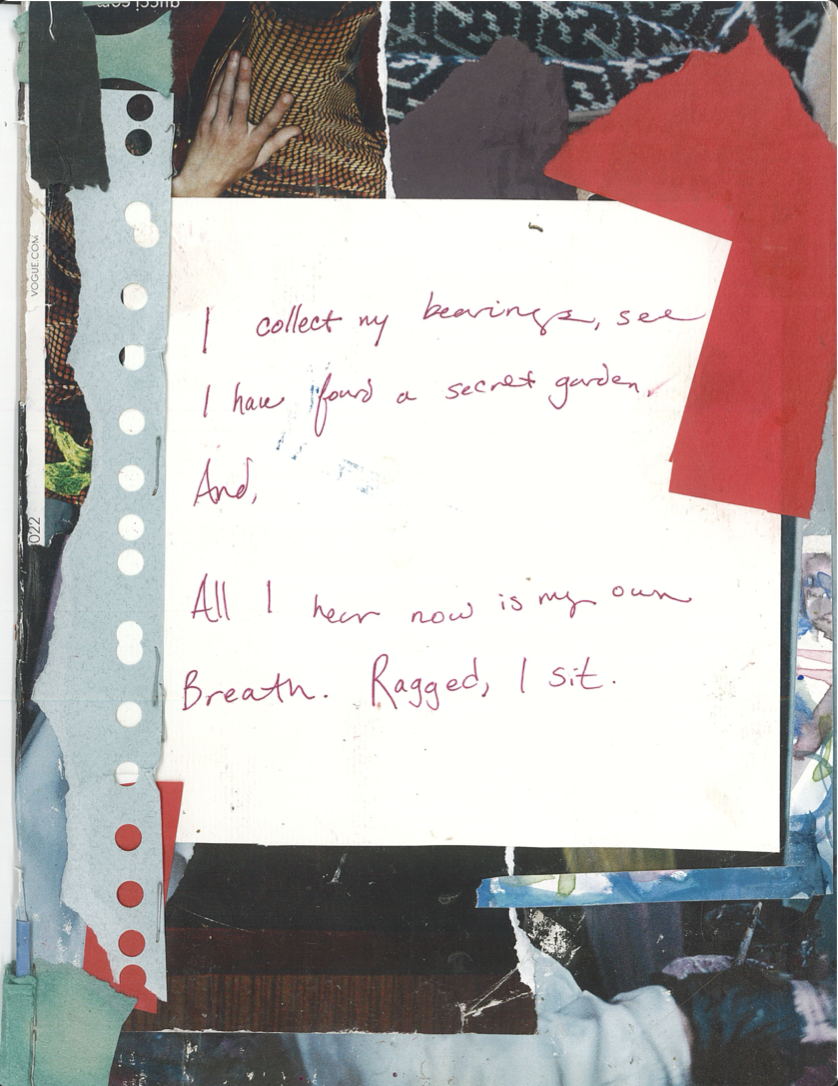 gucci.com
VOGUE.COM
022
I collect my bearings, see
I have found a secret garden.
And,
All I hear now is my own
Breath. Ragged, I sit.